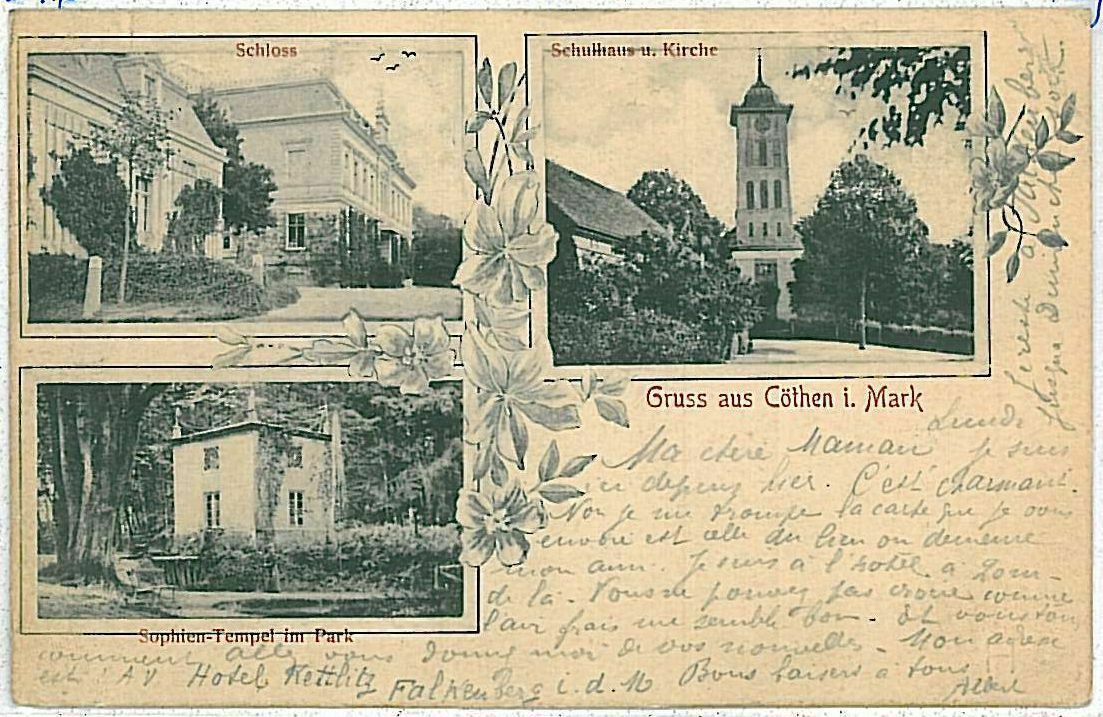 Schloss
Schulhaus u. Kirche
Sophien-Tempel im Park
Gruss aus Cöthen i. Mark
Lundi
Ma chère Maman je suis
ici depuis hier. C'est charmant.
Non je me trompe la carte que je vous
envoie est celle du lieu où demeure
mon ami. Je suis à l'hôtel à 20m
de là. Vous ne pouvez pas croire comme
l'air frais me semble bon. Et vous
comment allez vous donnez moi de vos nouvelles. Mon adresse
est: Hotel Kettlitz Falkenberg i. d. M Bons baisers à tous
Albert
Je reste à Falkenberg
jusqu'a Dimanche soir.